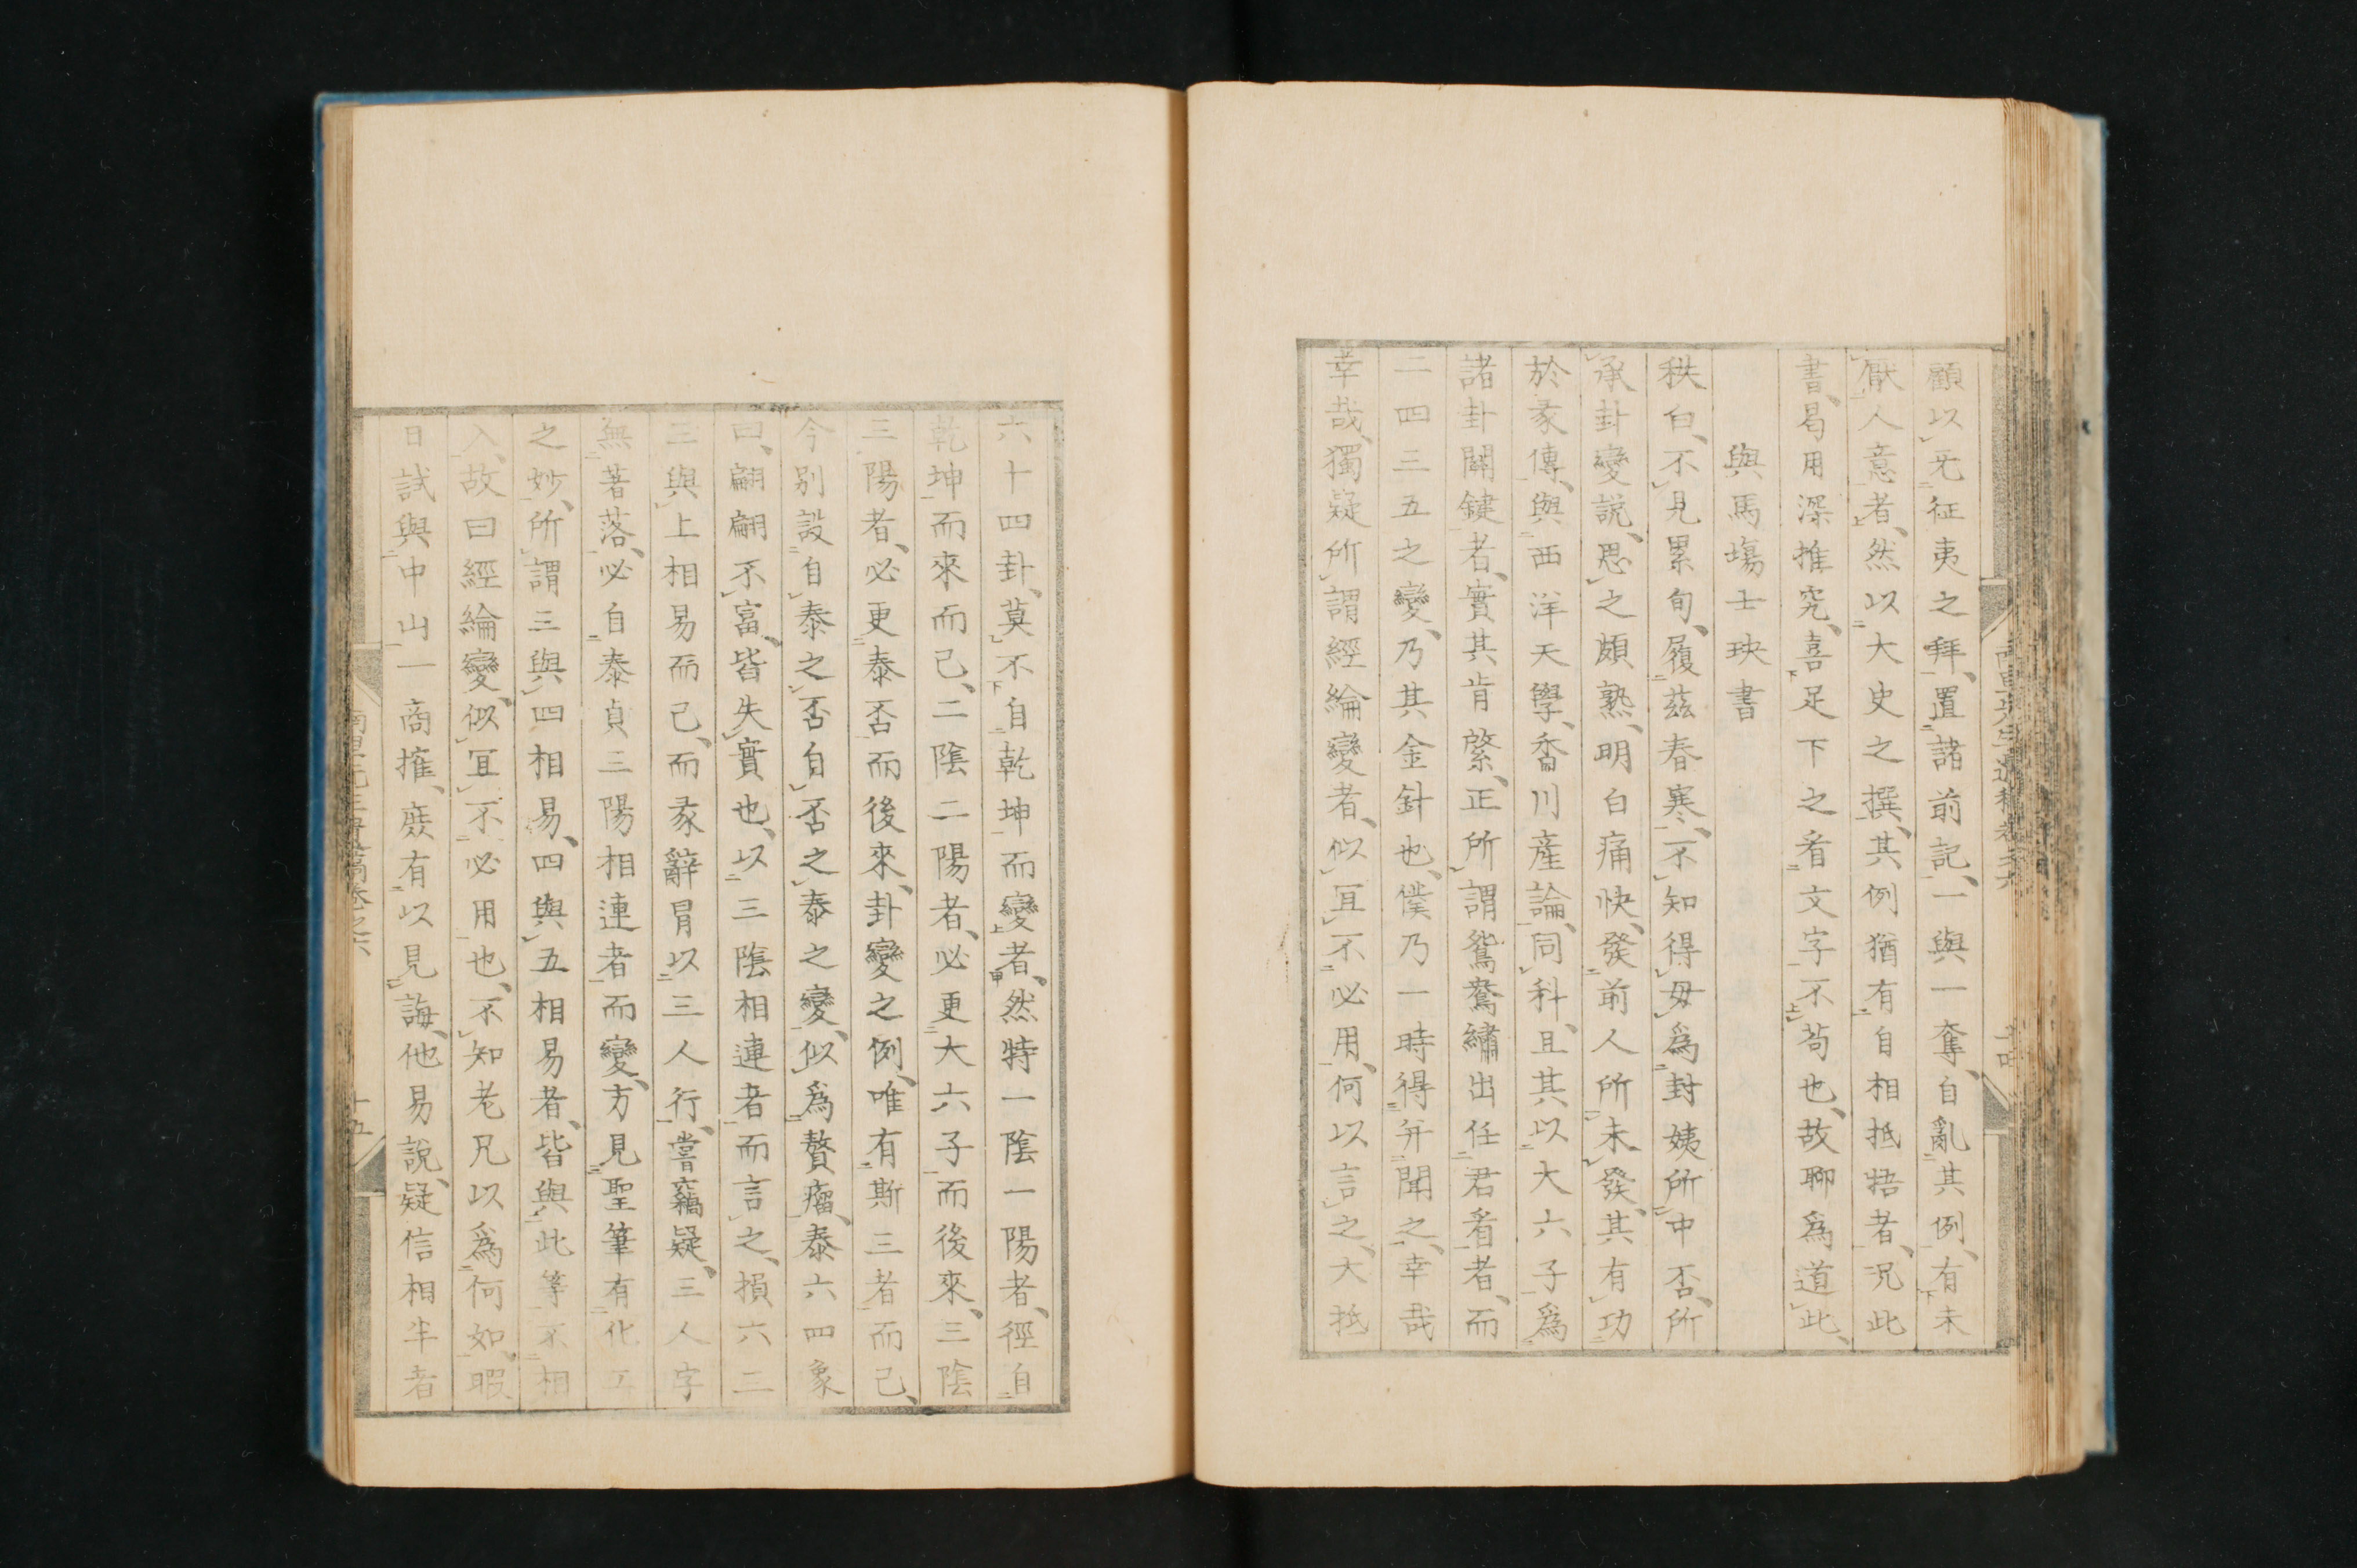 顧以无征夷之拜、置諸前記、一與一奪、自亂其例、有未
厭人意者、然以大史之撰、其例猶有自相抵牾者、况此
書、曷用深推究、喜足下之看文字不苟也、故聊爲道此、
與馬塲士玦書
秩白、不見累旬、履茲春寒、不知得毋爲封姨所中否、所
承卦變說、思之頗熟、明白痛快、發前人所未發、其有功
於彖傳、與西洋天學、香川產論、同科、且其以大六子爲
諸卦關鍵者、實其肯綮、正所謂鴛鴦繡出任君看者、而
二四三五之變、乃其金針也、僕乃一時得并聞之、幸哉
幸哉、獨疑所謂經綸變者、似冝不必用、何以言之、大抵
六十四卦、莫不自乾坤而變者、然特一陰一陽者、徑自
乾坤而來而已、二陰二陽者、必更大六子而後來、三陰
三陽者、必更泰否而後來、卦變之例、唯有斯三者而已、
今別設自泰之否自否之泰之變、似爲贅瘤、泰六四象
曰、翩翩不富、皆失實也、以三陰相連者而言之、損六三
三與上相易而已、而彖辭冐以三人行、嘗竊疑、三人字
無著落、必自泰貞三陽相連者而變、方見聖筆有化工
之妙、所謂三與四相易、四與五相易者、皆與此等不相
入、故曰經綸變、似冝不必用也、不知老兄以爲何如、暇
日試與中山一商搉、庶有以見誨、他易說、疑信相半者
十五